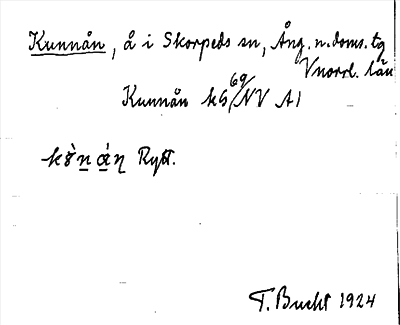 Kunnån, å i Skorpeds sn, Ång. n. doms. tg
Vnorrl. län
Kunnån kG 69/NV A1
Rytt.
T. Bucht 1924